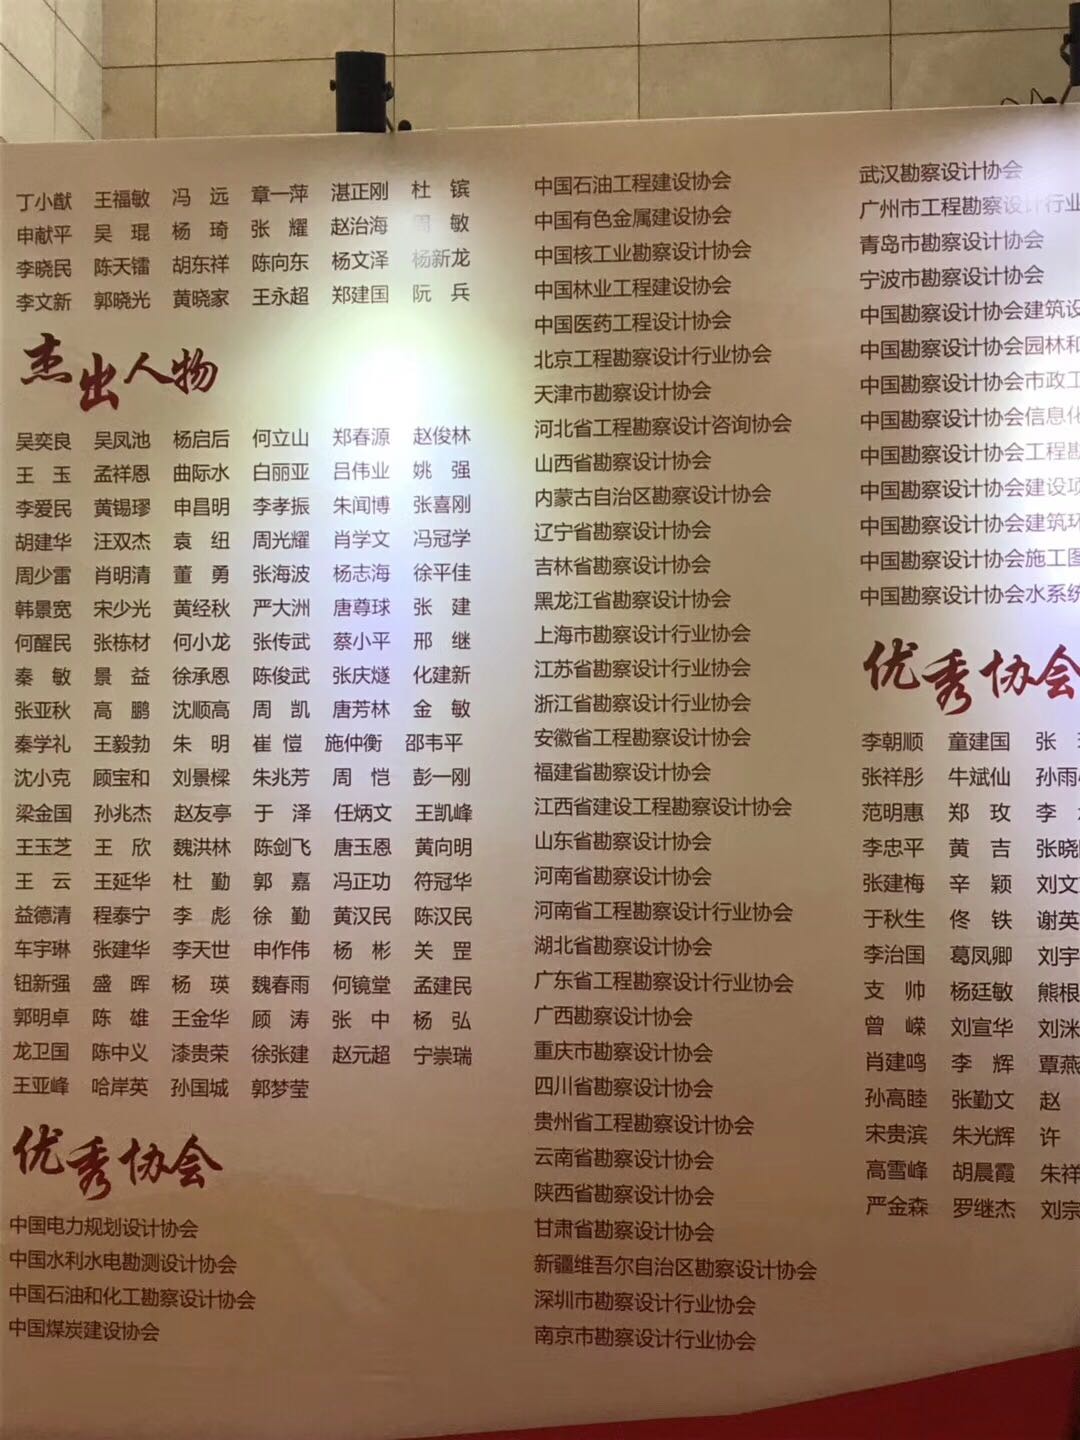 丁小猷 王福敏 冯远 章一萍 湛正刚 杜镔
申献平 吴琨 杨琦 张耀 赵治海 周敏
李晓民 陈天镭 胡东祥 陈向东 杨文泽 杨新龙
李文新 郭晓光 黄晓家 王永超 郑建国 阮兵
杰出人物
吴奕良 吴凤池 杨启后 何立山 郑春源 赵俊林
王玉 孟祥恩 曲际水 白丽亚 吕伟业 姚强
李爱民 黄锡璆 申昌明 李孝振 朱闻博 张喜刚
胡建华 汪双杰 袁纽 周光耀 肖学文 冯冠学
周少雷 肖明清 董勇 张海波 杨志海 徐平佳
韩景宽 宋少光 黄经秋 严大洲 唐尊球 张建
何醒民 张栋材 何小龙 张传武 蔡小平 邢继
秦敏 景益 徐承恩 陈俊武 张庆燧 化建新
张亚秋 高鹏 沈顺高 周凯 唐芳林 金敏
秦学礼 王毅勃 朱明 崔愷 施仲衡 邵韦平
沈小克 顾宝和 刘景樑 朱兆芳 周恺 彭一刚
梁金国 孙兆杰 赵友亭 于泽 任炳文 王凯峰
王玉芝 王欣 魏洪林 陈剑飞 唐玉恩 黄向明
王云 王延华 杜勤 郭嘉 冯正功 符冠华
益德清 程泰宁 李彪 徐勤 黄汉民 陈汉民
车宇琳 张建华 李天世 申作伟 杨彬 关罡
钮新强 盛晖 杨瑛 魏春雨 何镜堂 孟建民
郭明卓 陈雄 王金华 顾涛 张中 杨弘
龙卫国 陈中义 漆贵荣 徐张建 赵元超 宁崇瑞
王亚峰 哈岸英 孙国城 郭梦莹
优秀协会
中国电力规划设计协会
中国水利水电勘测设计协会
中国石油和化工勘察设计协会
中国煤炭建设协会
中国石油工程建设协会
中国有色金属建设协会
中国核工业勘察设计协会
中国林业工程建设协会
中国医药工程设计协会
北京工程勘察设计行业协会
天津市勘察设计协会
河北省工程勘察设计咨询协会
山西省勘察设计协会
内蒙古自治区勘察设计协会
辽宁省勘察设计协会
吉林省勘察设计协会
黑龙江省勘察设计协会
上海市勘察设计行业协会
江苏省勘察设计行业协会
浙江省勘察设计行业协会
安徽省工程勘察设计协会
福建省勘察设计协会
江西省建设工程勘察设计协会
山东省勘察设计协会
河南省勘察设计协会
河南省工程勘察设计行业协会
湖北省勘察设计协会
广东省工程勘察设计行业协会
广西勘察设计协会
重庆市勘察设计协会
四川省勘察设计协会
贵州省工程勘察设计协会
云南省勘察设计协会
陕西省勘察设计协会
甘肃省勘察设计协会
新疆维吾尔自治区勘察设计协会
深圳市勘察设计行业协会
南京市勘察设计行业协会
武汉勘察设计协会
广州市工程勘察设计行业
青岛市勘察设计协会
宁波市勘察设计协会
中国勘察设计协会建筑设
中国勘察设计协会园林和
中国勘察设计协会市政工
中国勘察设计协会信息化
中国勘察设计协会工程勘
中国勘察设计协会建设项
中国勘察设计协会建筑环
中国勘察设计协会施工图
中国勘察设计协会水系统
优秀协会
李朝顺 童建国 张
张祥彤 牛斌仙 孙雨
范明惠 郑玫 李
李忠平 黄吉 张晓
张建梅 辛颖 刘文
于秋生 佟铁 谢英
李治国 葛凤卿 刘宇
支帅 杨廷敏 熊根
曾嵘 刘宣华 刘洣
肖建鸣 李辉 覃燕
孙高睦 张勤文 赵
宋贵滨 朱光辉 许
高雪峰 胡晨霞 朱祥
严金森 罗继杰 刘宗